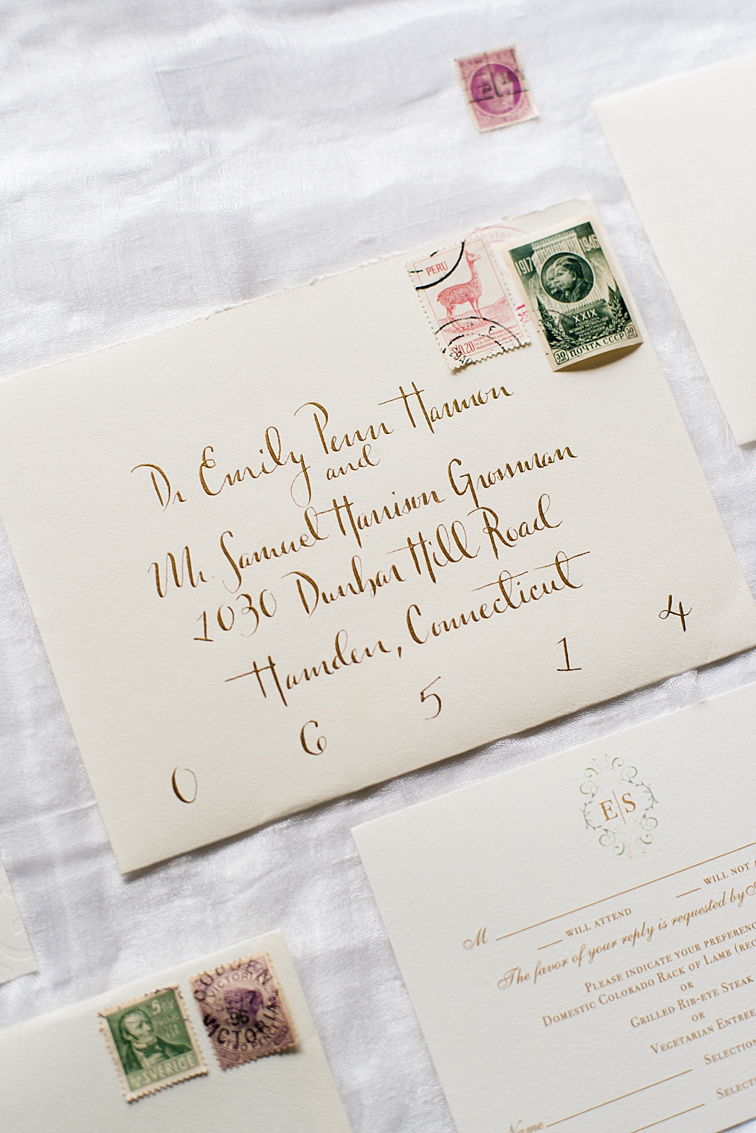 PERU
1917 1946
XXIX
50 50
ПОЧТА СССР
Dr Emily Penn Harmon
and
Mr. Samuel Harrison Grossman
1030 Dunbar Hill Road
Hamden, Connecticut
0 6 5 1 4
E|S
M
WILL ATTEND WILL NOT
The favor of your reply is requested by
PLEASE INDICATE YOUR
DOMESTIC COLORADO RACK OF LAMB
OR
GRILLED RIB-EYE STEAK
OR
VEGETARIAN
Name
5
SVERIGE
VICTORIA
96
VICTORIA